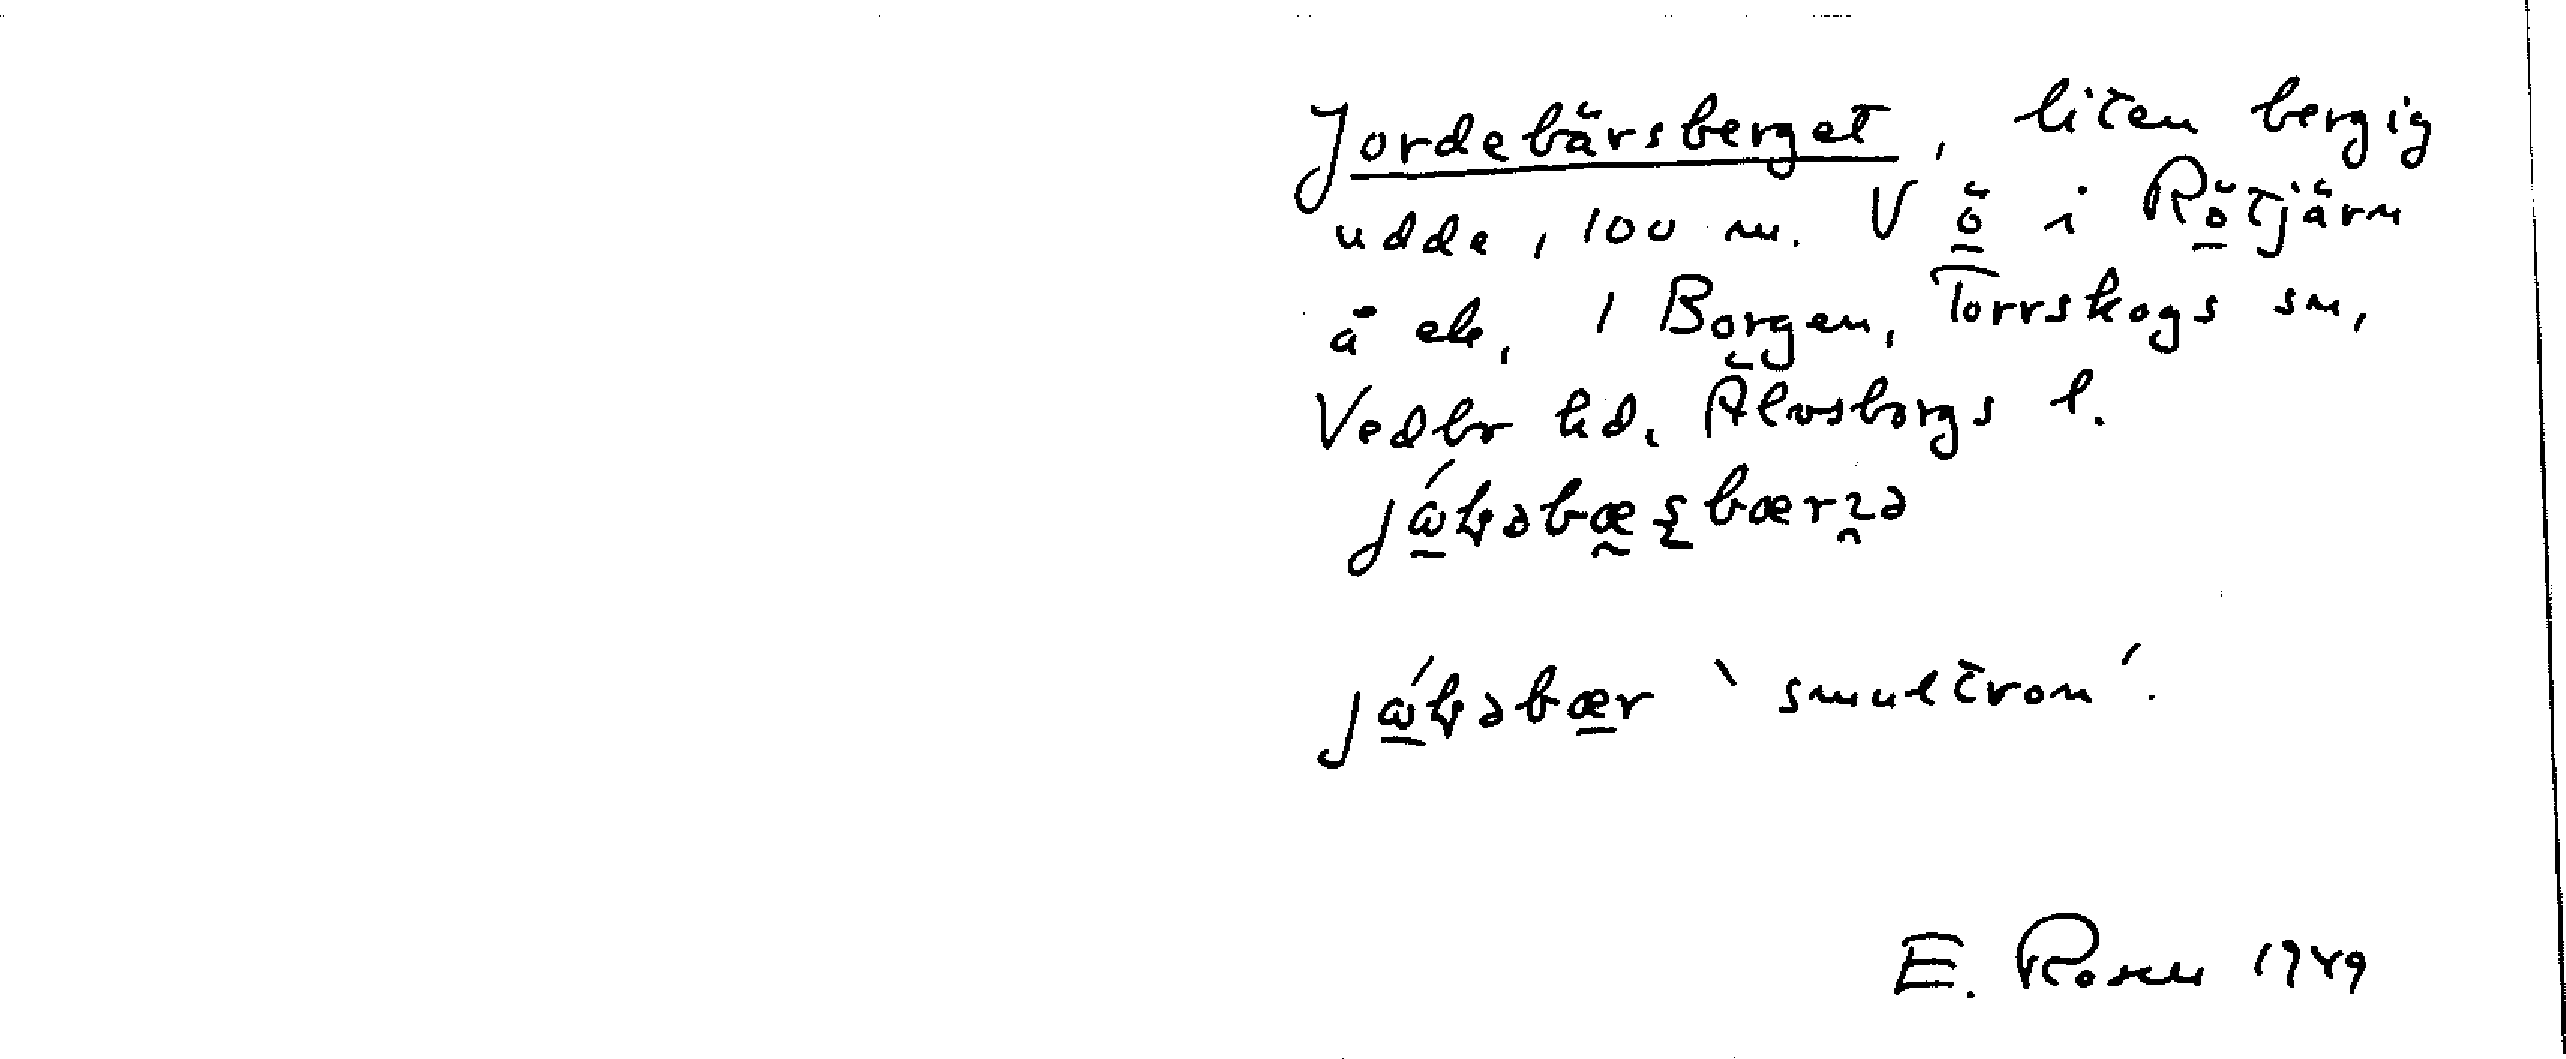 Jordebärsberget, liten bergig
udde, 100 m. V ö i Rötjärn
å ek. 1 Borgen, Torrskogs sn,
Vedbo hd. Älvsborgs l.
'smultron'.
E. Rosen 1949